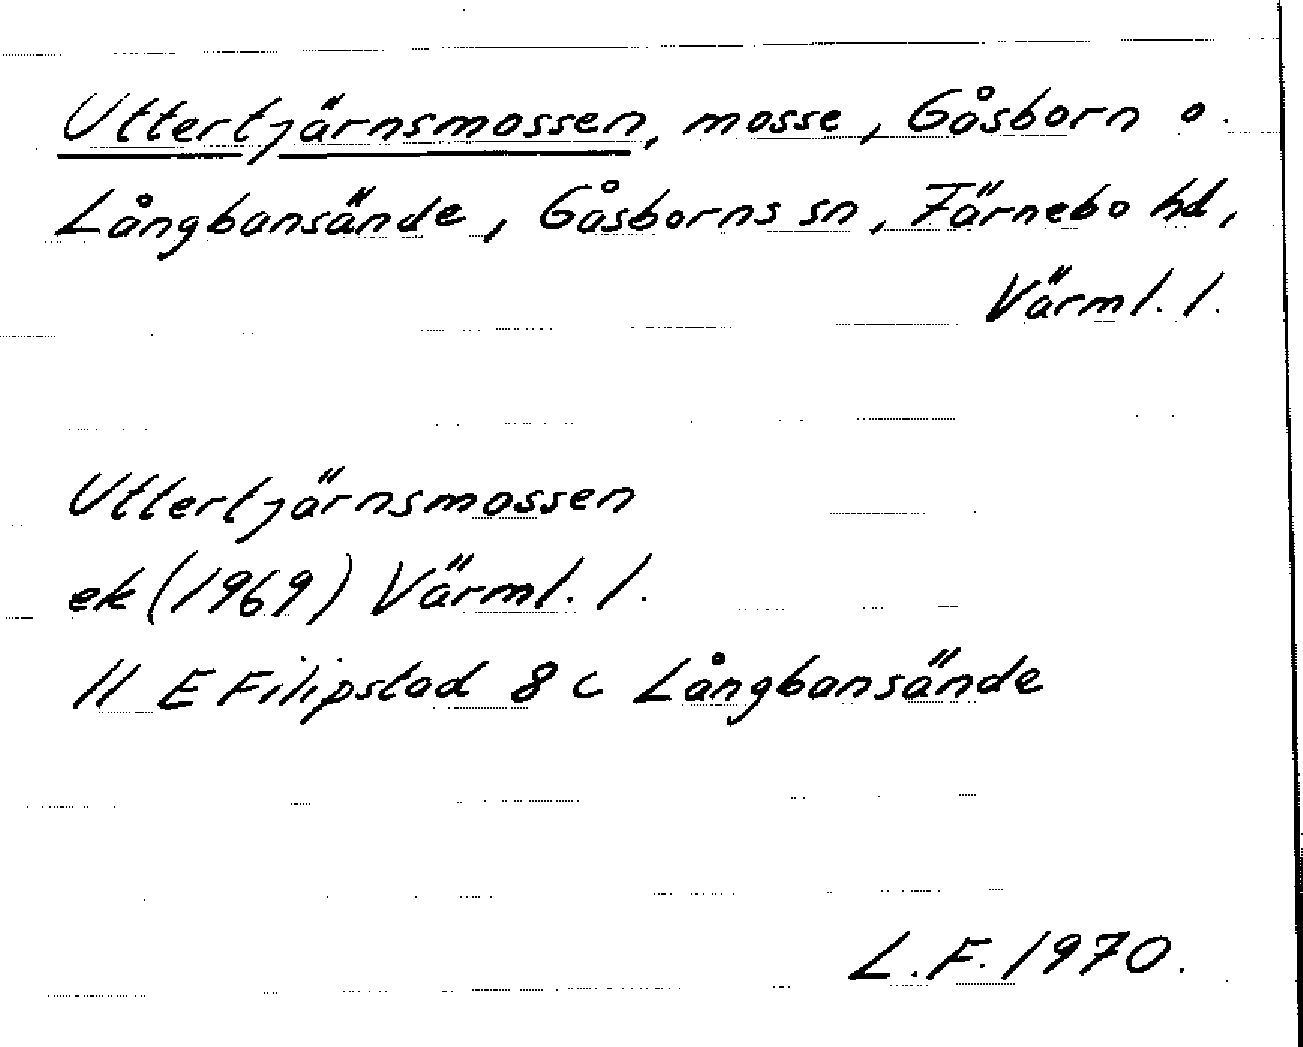 Uttertjärnsmossen, mosse, Gåsborn o.
Långbansände, Gåsborns sn, Färnebo hd,
Värml. l.
Uttertjärnsmossen
ek (1969) Värml. l.
11 E Filipstad 8 c Långbansände
L.F. 1970.